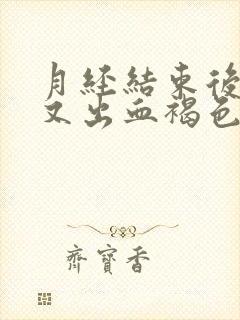 月经結束後
又出血褐色
齊寶香